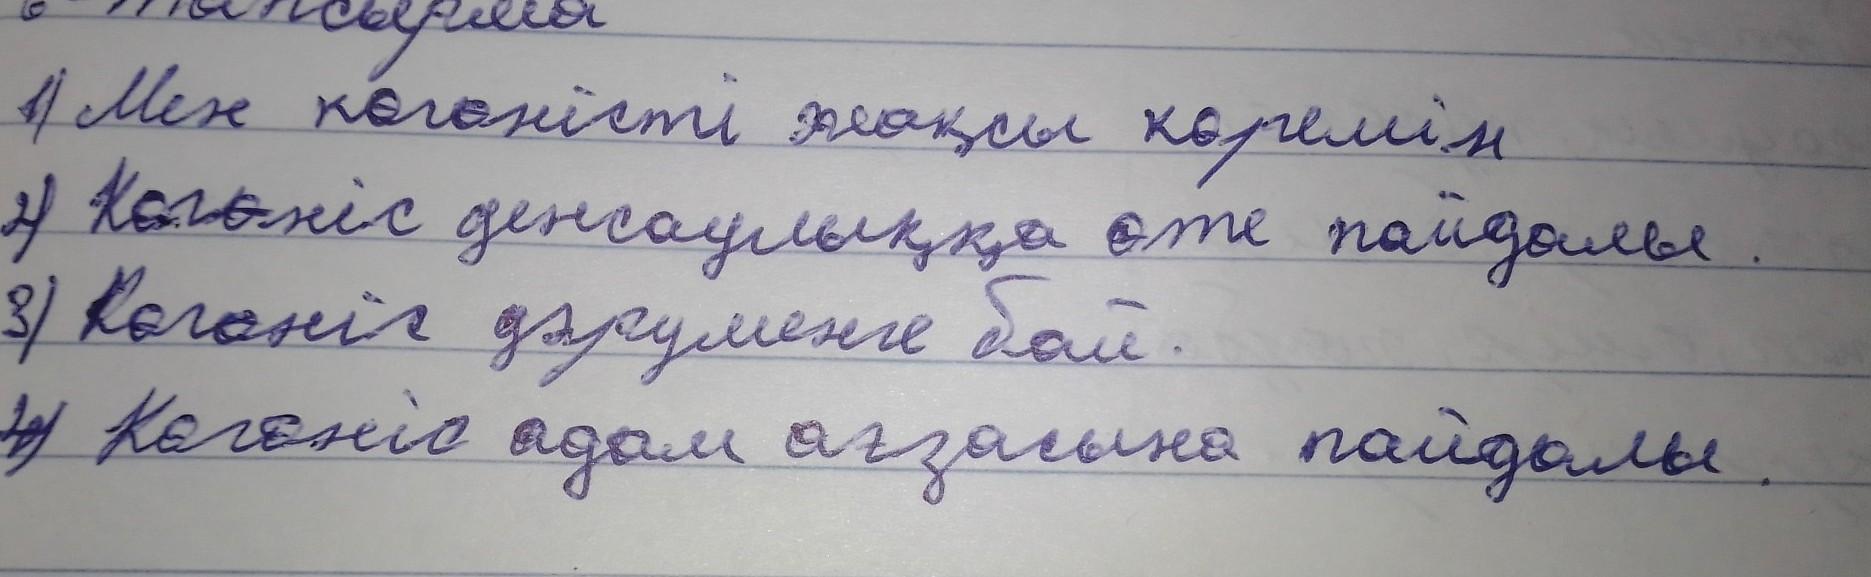 6-тапсырма
1) Мен көгөністі жақсы көремін
2) Көгөніс денсаулыққа өте пайдалы.
3) Көгөніс дәруменге бай.
4) Көгөніс адам ағзасына пайдалы.